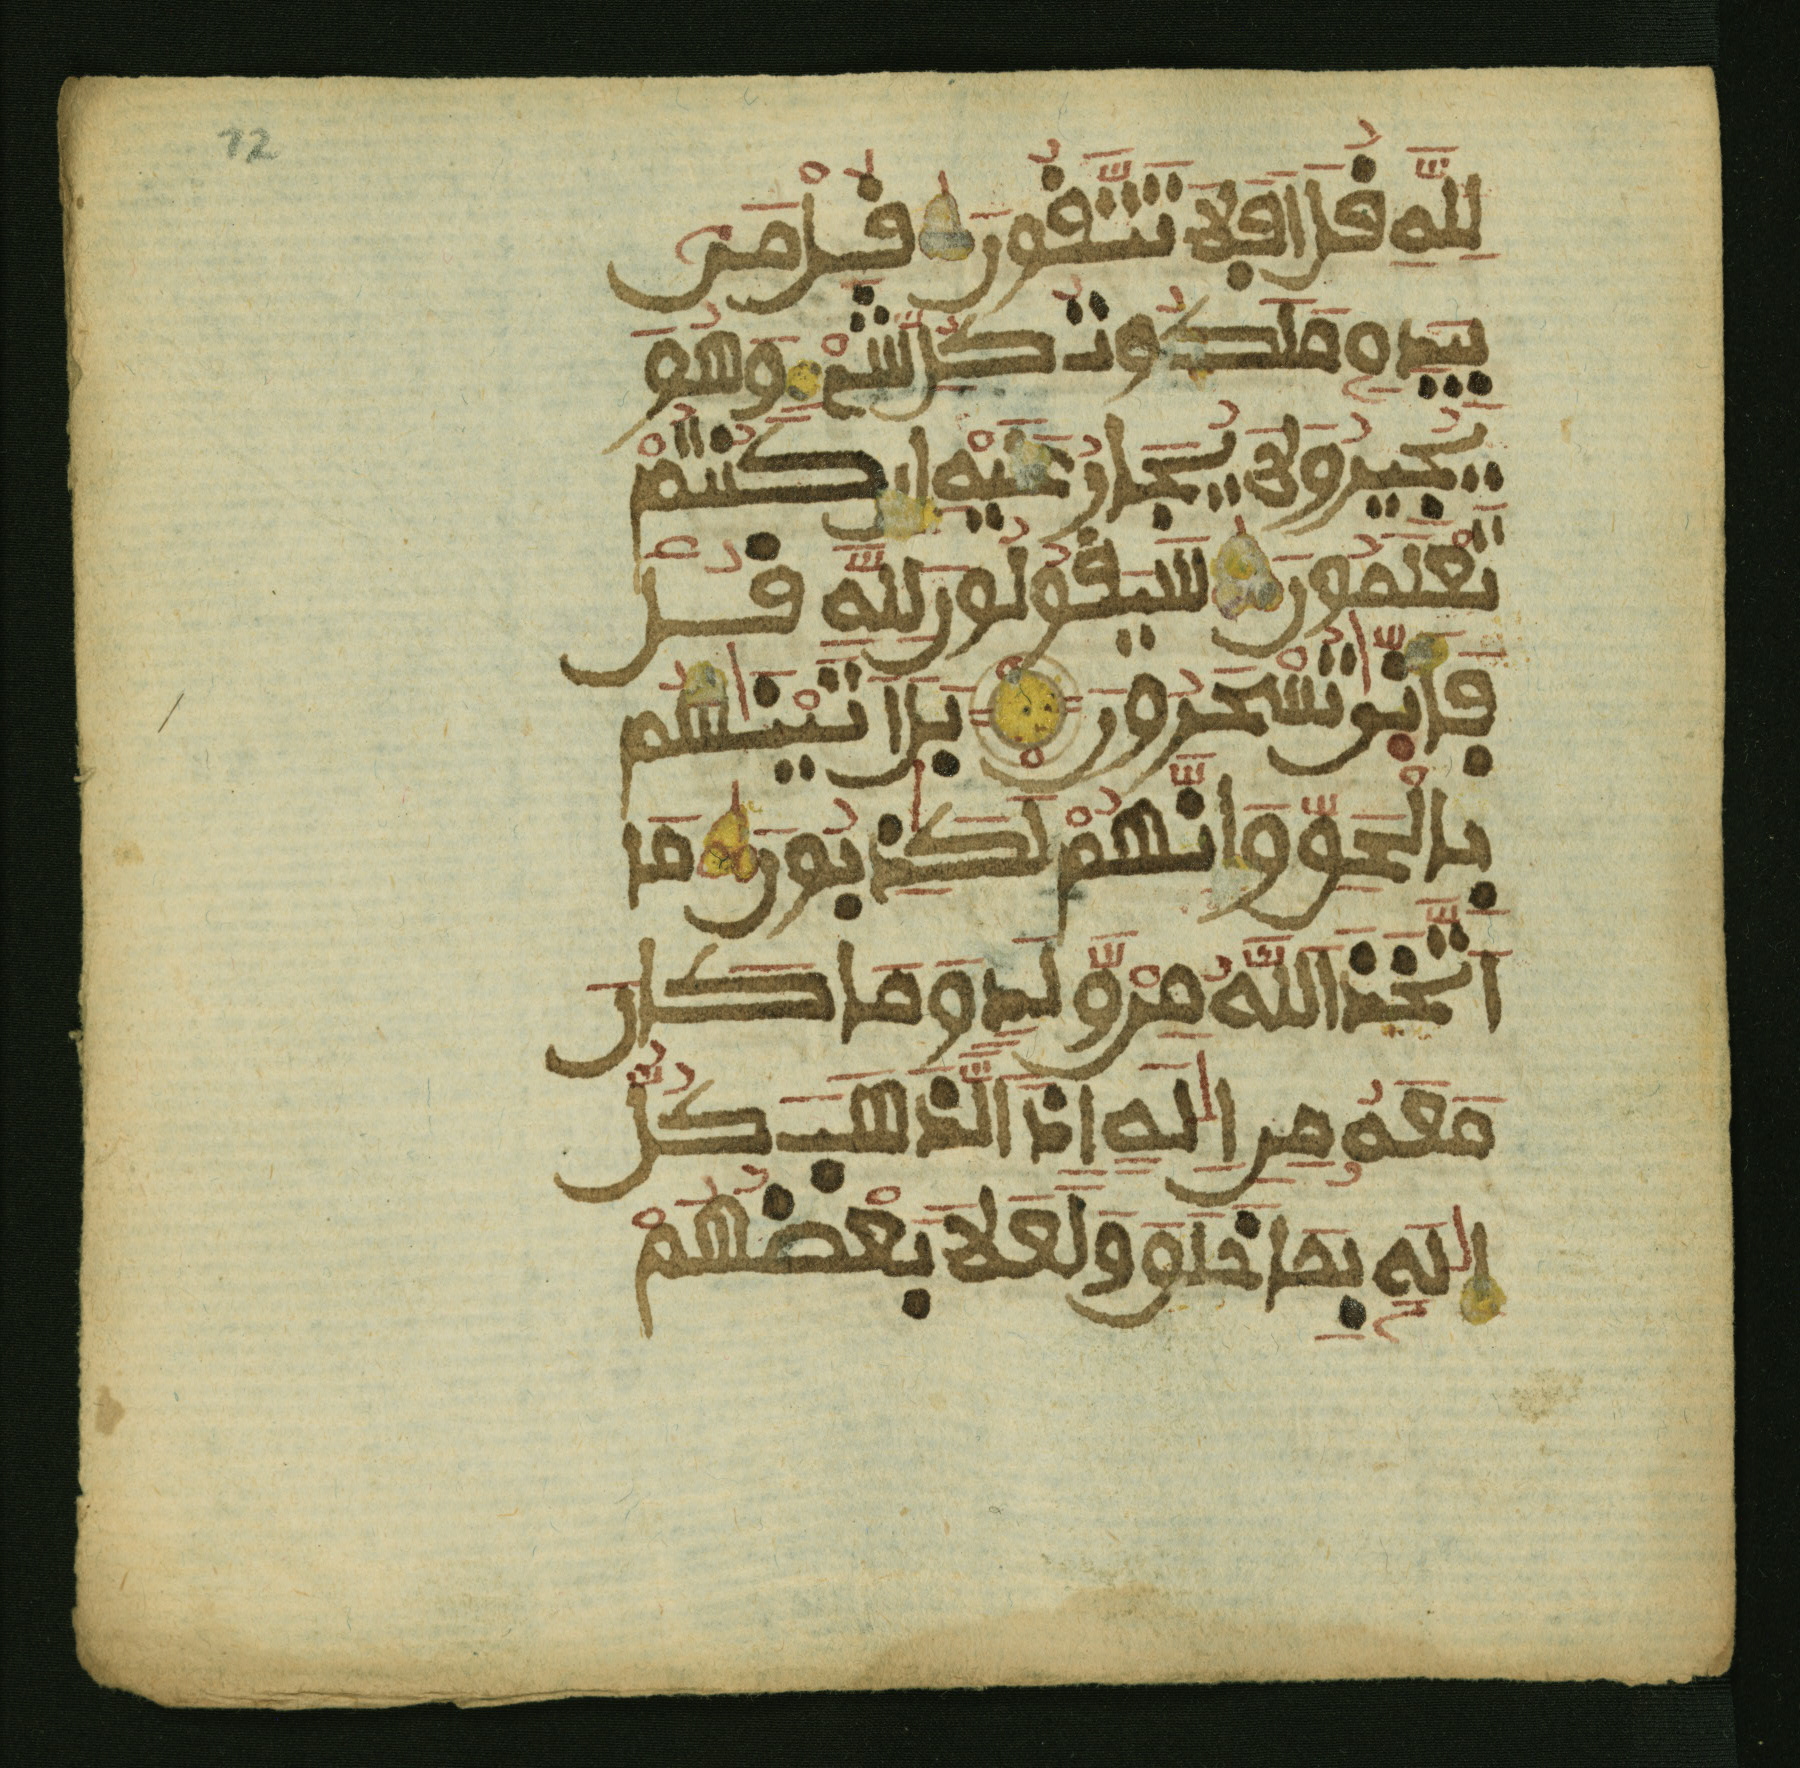 72
لِلَّهِ قُلَ اَفَلَا تَتَّقُونَ قُلْ مَنۢ
بِيَدِهِ مَلَكُوتُ كُلِّ شَيْءٍ وَهُوَ
يُجِيرُ وَلَا يُجَارُ عَلَيْهِ إِن كُنتُمْ
تَعْلَمُونَ سَيَقُولُونَ لِلَّهِ قُلْ
فَأَنّٰى تُسْحَرُونَ بَلَ اَتَيْنٰهُم
بِالْحَقِّ وَإِنَّهُمْ لَكٰذِبُونَ مَا
اَتَّخَذَ اللَّهُ مِنْ وَّلَدٍ وَمَا كَانَ
مَعَهُ مِنِ اِلٰهٍ إِذًا لَّذَهَبَ كُلُّ
إِلٰهٍۢ بِمَا خَلَقَ وَلَعَلَا بَعْضُهُمْ